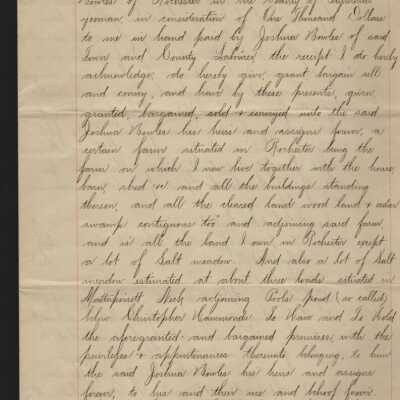 Bowles of Rochester in the County of
yeoman, in consideration of One Thousand Dollars
to me in hand paid by Joshua Bowles of said
Town and County Laborer the receipt I do hereby
acknowledge, do hereby give, grant bargain sell
and convey, and have by these presents, given
granted, bargained, sold & conveyed unto the said
Joshua Bowles his heirs and assigns forever, a
certain farm situated in Rochester being the
farm on which I now live together with the house,
barn, shed &c and all the buildings standing
thereon, and all the cleared land wood land & cedar
swamp contiguous too and adjoining said farm,
and is all the land I own in Rochester except
a lot of Salt meadow. And also a lot of Salt
meadow estimated at about three loads situated in
Mattapoisett Neck adjoining Pools pond (so called)
below Christopher Hammonds. To Have and To Hold
the aforegranted and bargained premises, with the
privileges & appurtenances thereunto belonging, to him
the said Joshua Bowles his heirs and assigns
forever, to his and their use and behoof forever